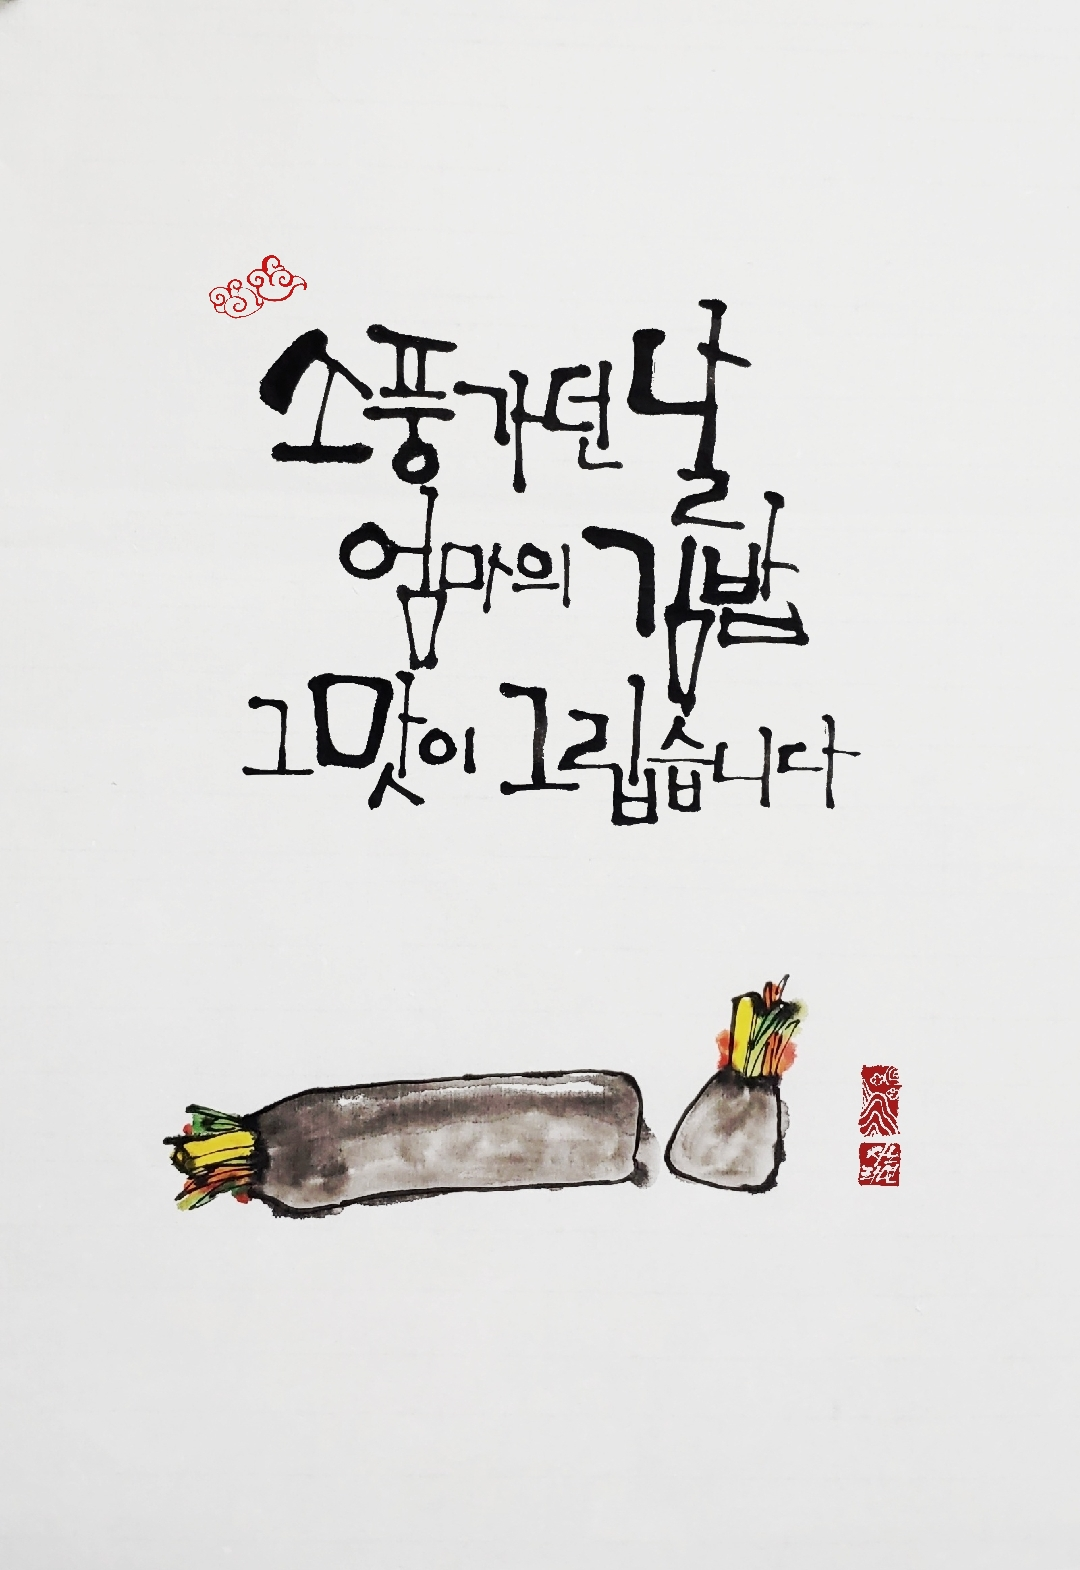 소풍가던 날
엄마의 김밥
그 맛이 그립습니다